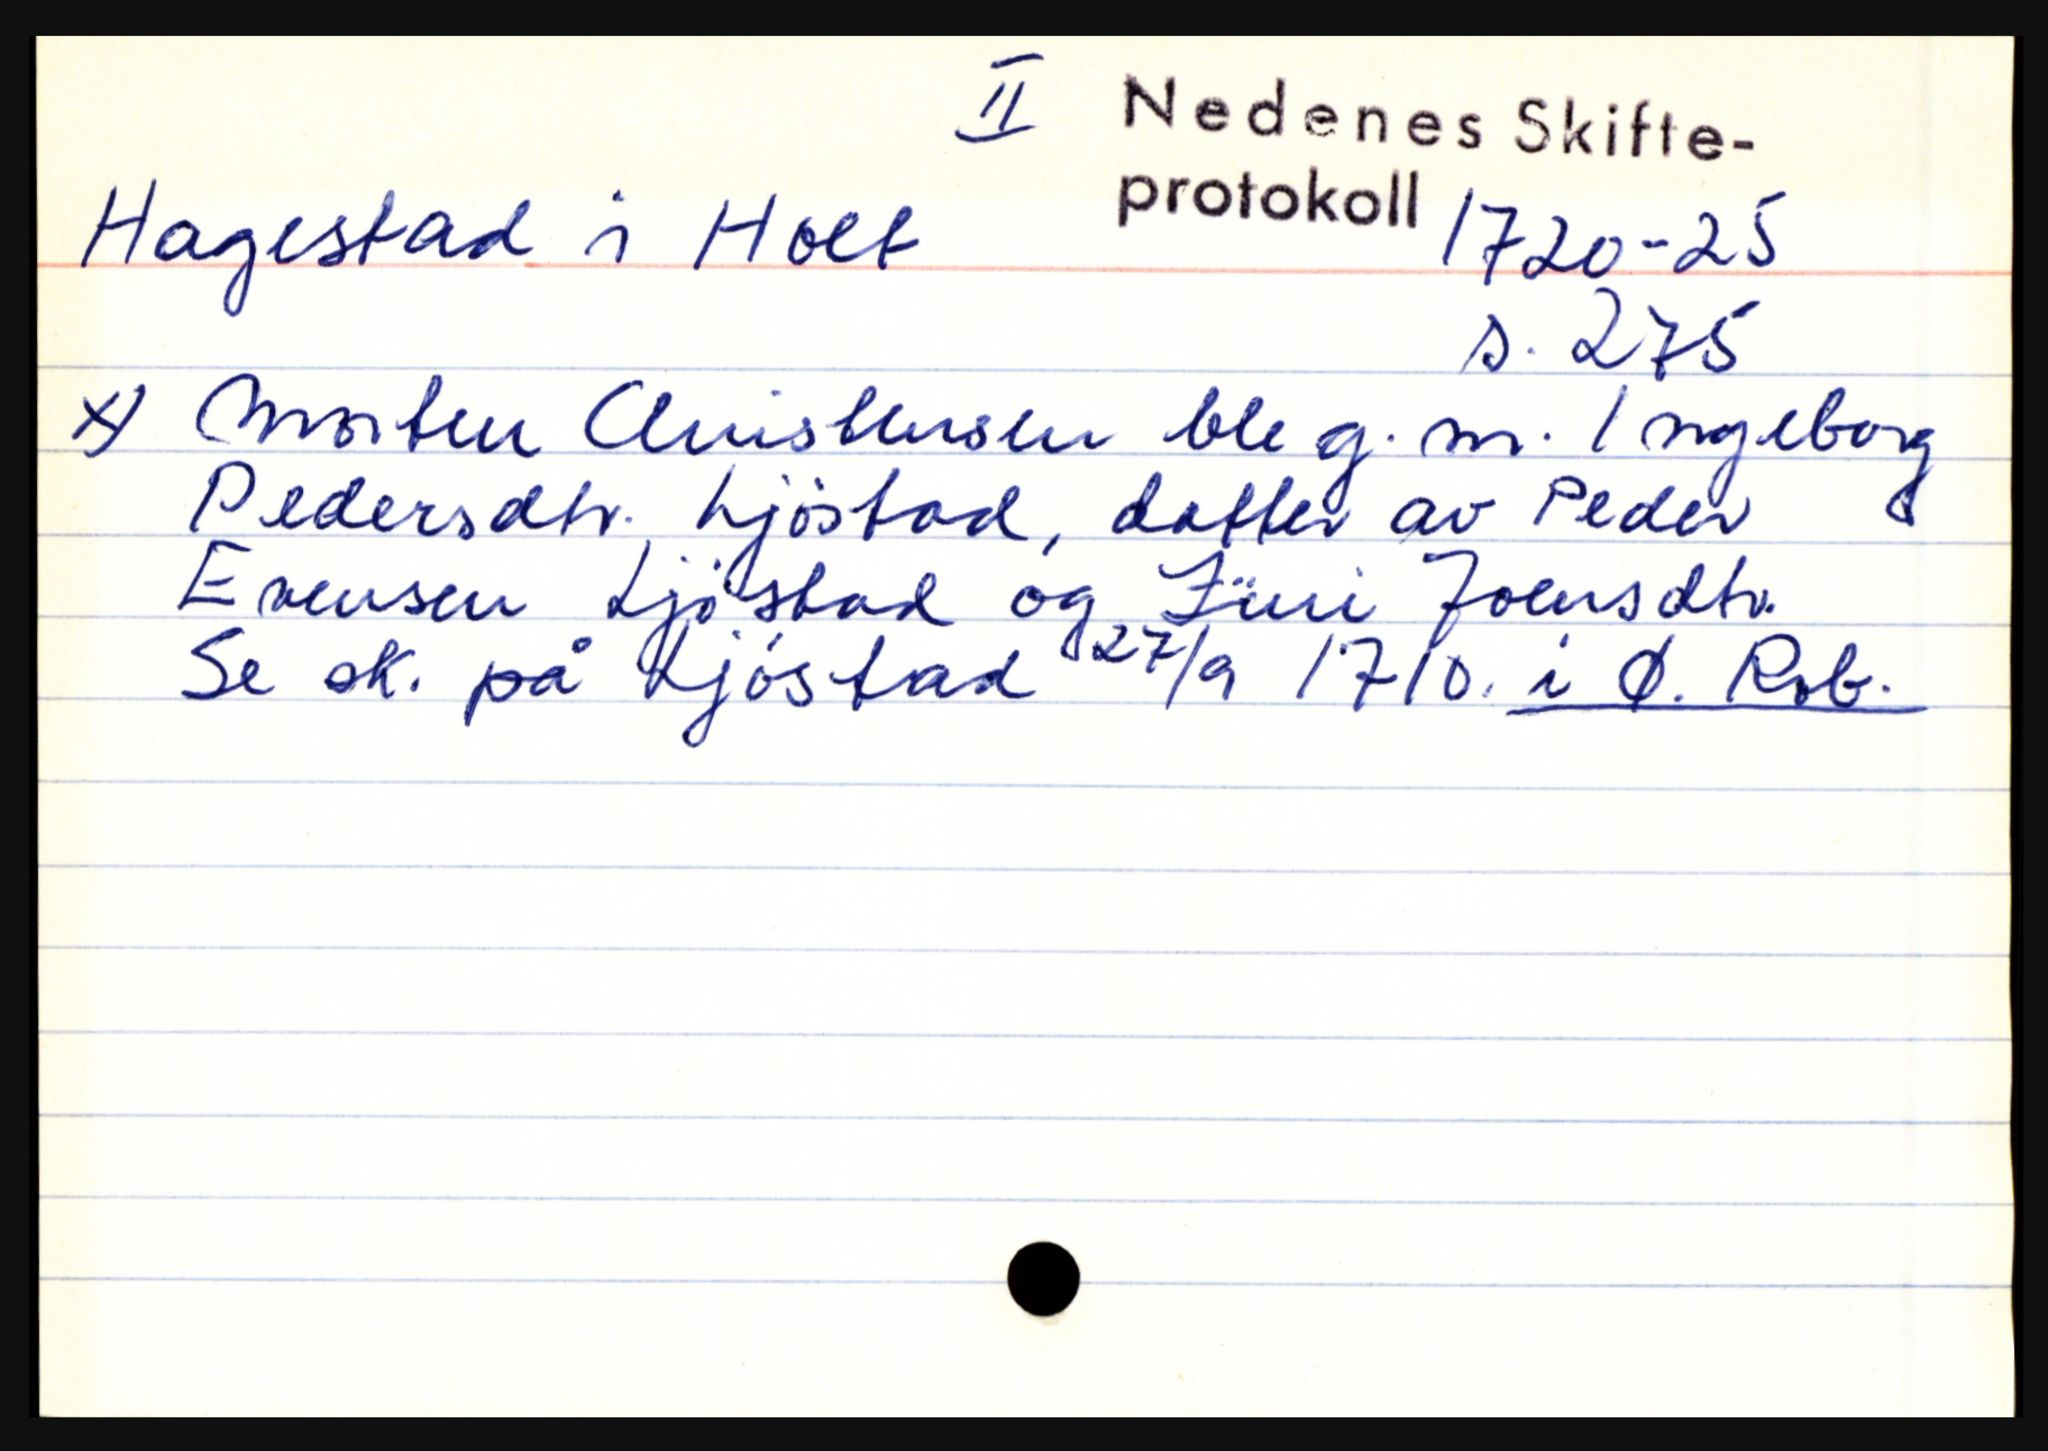 II Nedenes Skifte-
protokoll
Hagestad i Holt 1720-25
s. 275
x) Morten Christensen ble g. m. Ingeborg
Pedersdtr. Ljöstad, datter av Peder
Evensen Ljöstad og Jüri Joensdtr.
Se sk. på Ljöstad 27/9 1710. i Ø. Rob.